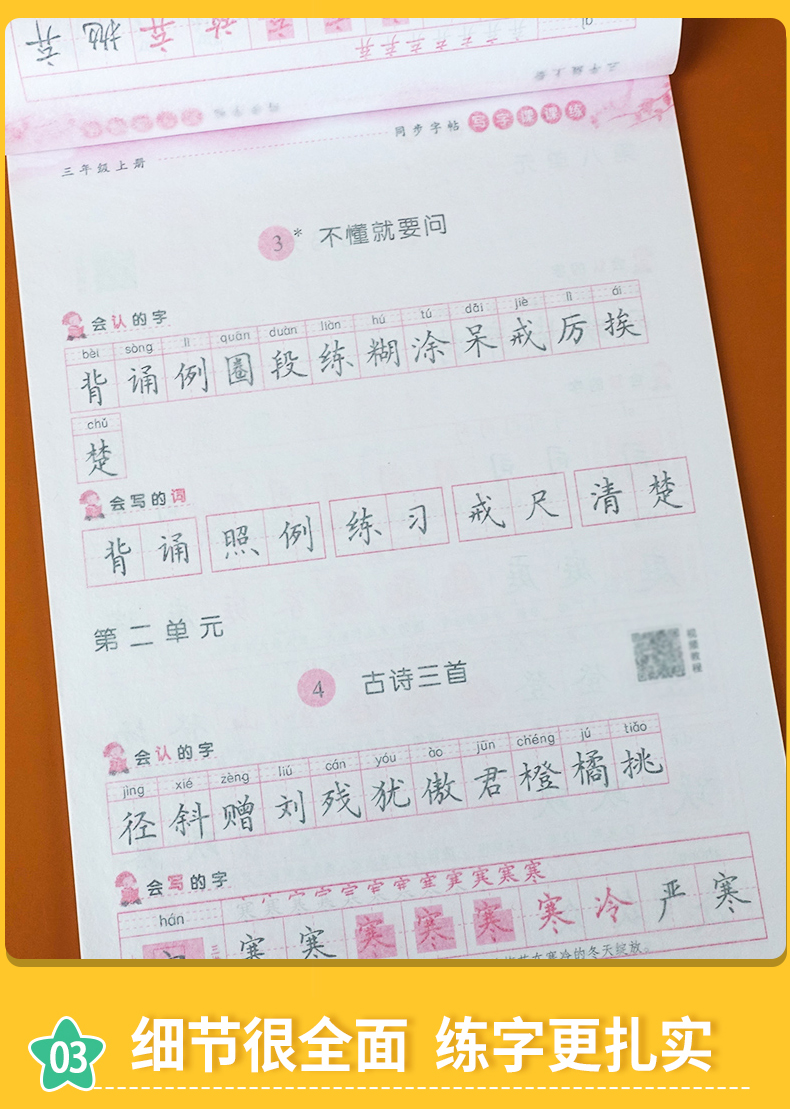 弃 抛 弃 放 弃
三年级上册
同步字帖 写字课课练
三年级上册
3* 不懂就要问
会认的字
bèi sòng lì quān duàn liàn hú tú dāi jiè lì ái
背 诵 例 圈 段 练 糊 涂 呆 戒 厉 挨
chǔ
楚
会写的词
背诵 照例 练习 戒尺 清楚
第二单元
视频教程
4 古诗三首
会认的字
jìng xié zèng liú cán yóu ào jūn chéng jú tiǎo
径 斜 赠 刘 残 犹 傲 君 橙 橘 挑
会写的字
hán
寒 寒 寒 寒 寒 寒 寒 冷 严 寒
在寒冷的冬天绽放。
03 细节很全面 练字更扎实